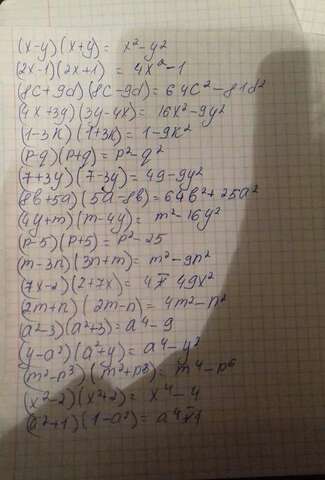 (x-y)(x+y) = x²-y²
(2x-1)(2x+1) = 4x²-1
(8c+9d)(8c-9d) = 64c²-81d²
(4x+3y)(3y-4x) = 16x²-9y²
(1-3k)(1+3k) = 1-9k²
(p-q)(p+q) = p²-q²
(7+3y)(7-3y) = 49-9y²
(8b+5a)(5a-8b) = 64b²+25a²
(4y+m)(m-4y) = m²-16y²
(p-5)(p+5) = p²-25
(m-3n)(3n+m) = m²-9n²
(7x-2)(2+7x) = 49x²
(2m+n)(2m-n) = 4m²-n²
(a²-3)(a²+3) = a⁴-9
(y-a²)(a²+y) = a⁴-y²
(m²-n³)(m²+n³) = m⁴-n⁶
(x²-2)(x²+2) = x⁴-4
(a²+1)(1-a²) = a⁴